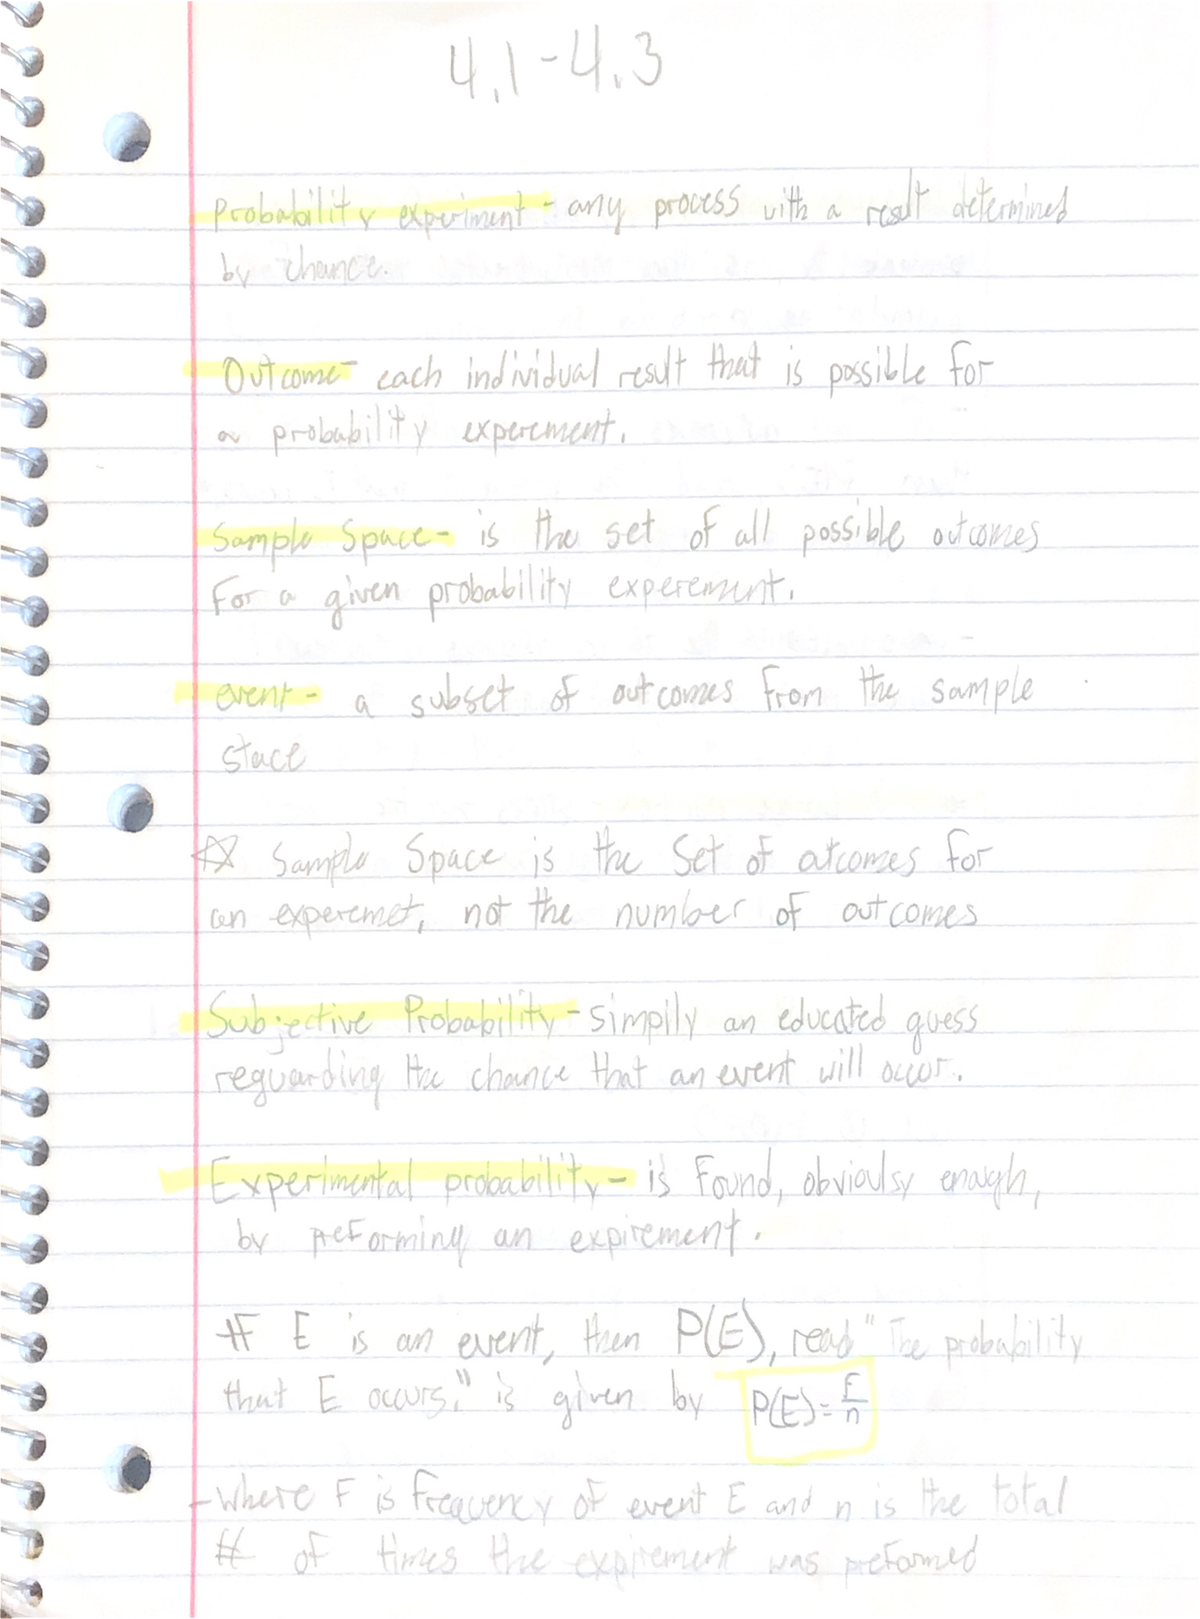 4.1-4.3
Probability experiment - any process with a result determined
by chance.
Outcome - each individual result that is possible for
a probability experement.
Sample Space - is the set of all possible outcomes
For a given probability experement.
event - a subset of outcomes from the sample
stace
☆ Sample Space is the Set of atcomes for
an experemet, not the number of outcomes
Subjective Probability - simpily an educated guess
reguarding the chance that an event will occur.
Experimental probability - is Found, obvioulsy enough,
by preForming an expirement.
IF E is an event, then P(E), read "The probability
that E occurs." is given by P(E) = F/n
- Where F is Frequency of event E and n is the total
# of times the expirement was preformed